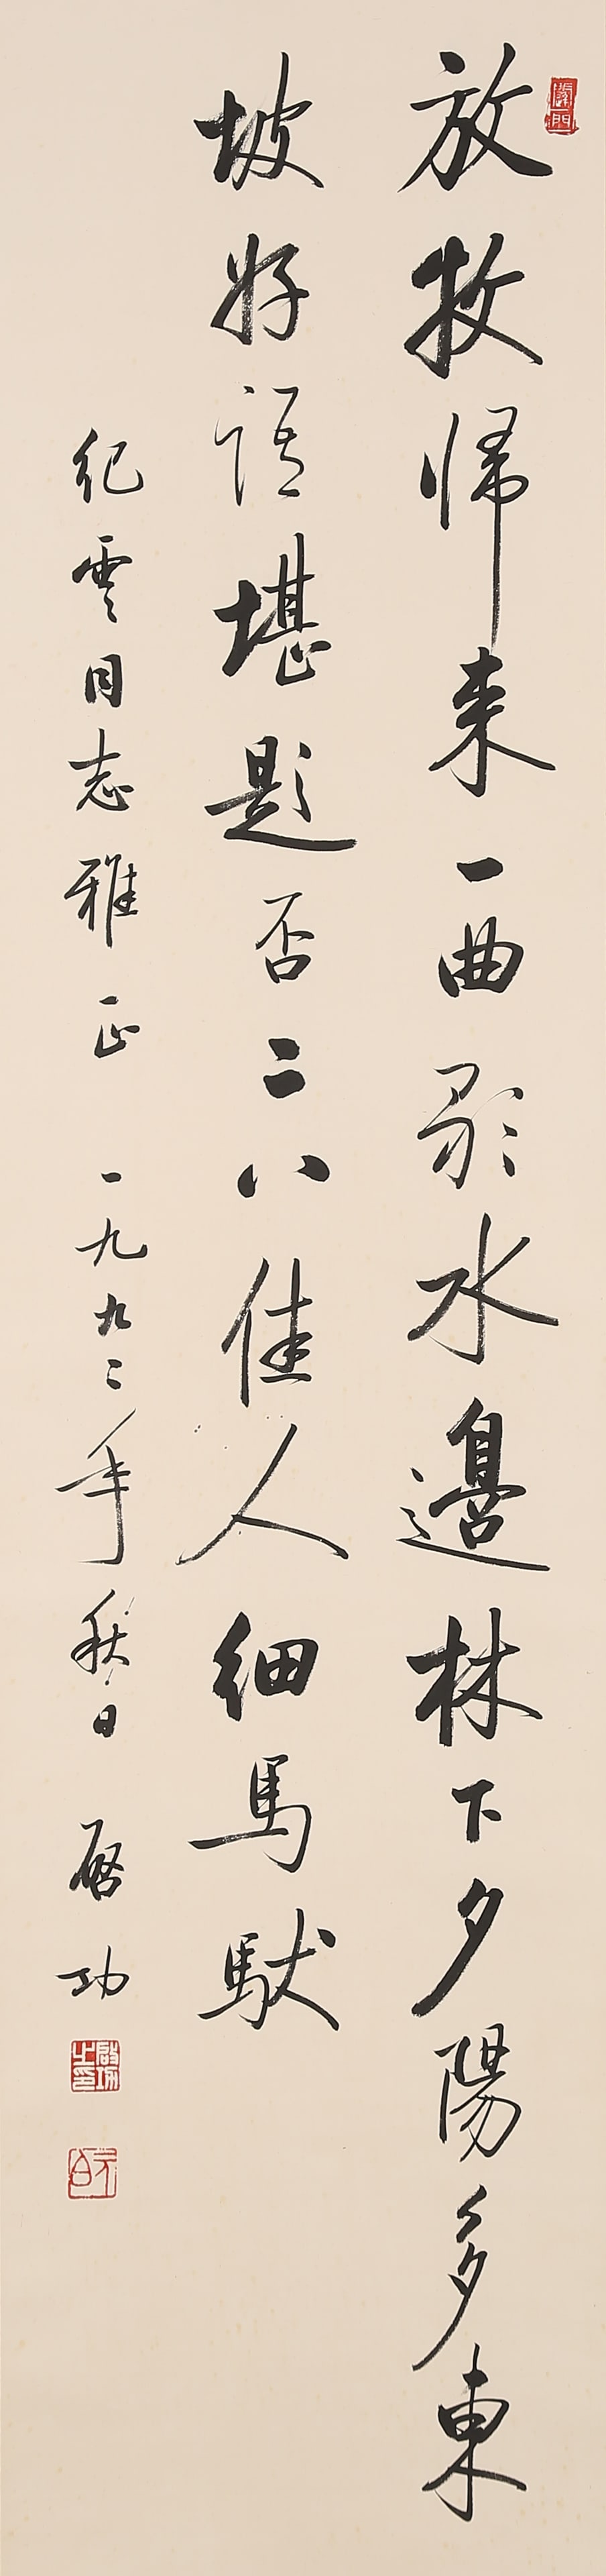 放牧歸来一曲歌水邊林下夕陽多東
坡好語堪題否二八佳人細馬馱
紀雲同志雅正 一九九二年秋日 啓功
啟功之印
元白